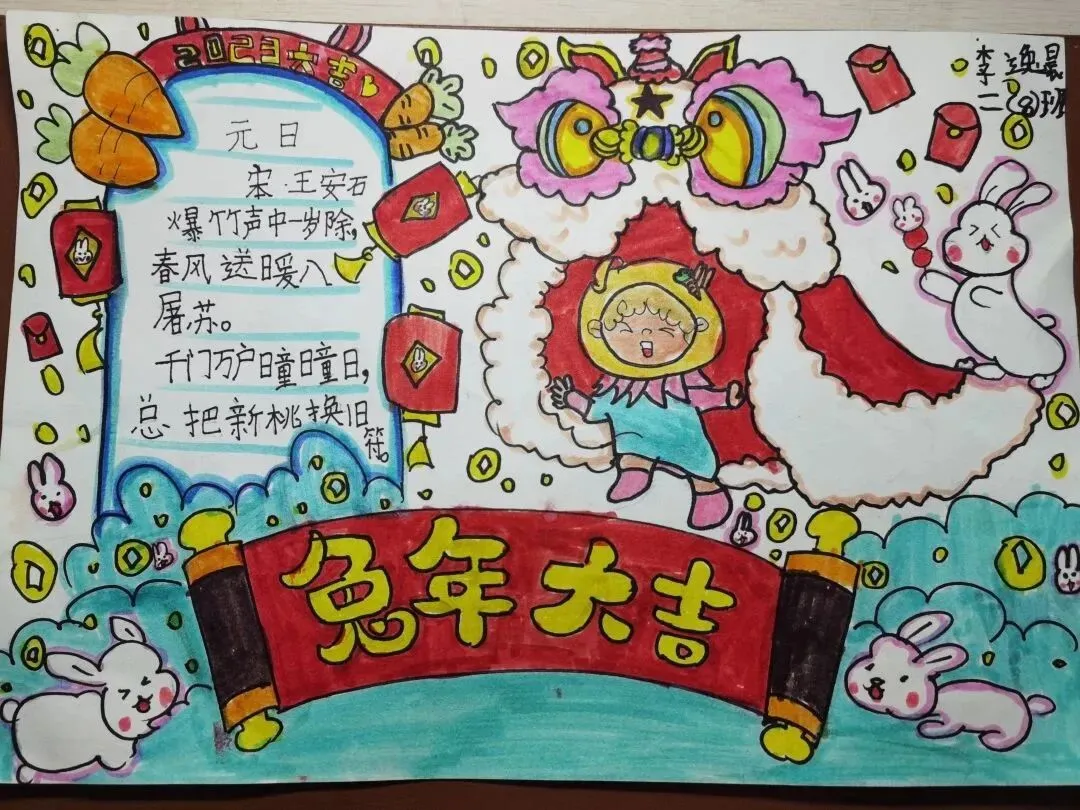 2023大吉
元日
宋·王安石
爆竹声中一岁除,
春风送暖入
屠苏。
千门万户曈曈日,
总把新桃换旧
符。
李
二(8)班
兔年大吉